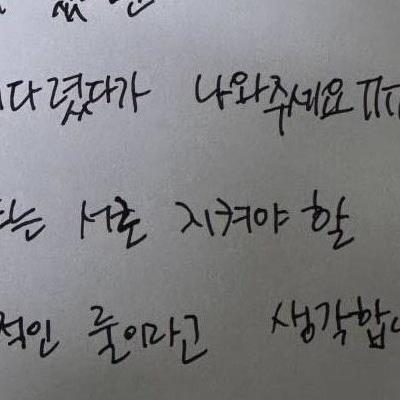 다렸다가 나와주세요 ㅠㅠ
는 서로 지켜야 할
적인 룰이라고 생각합